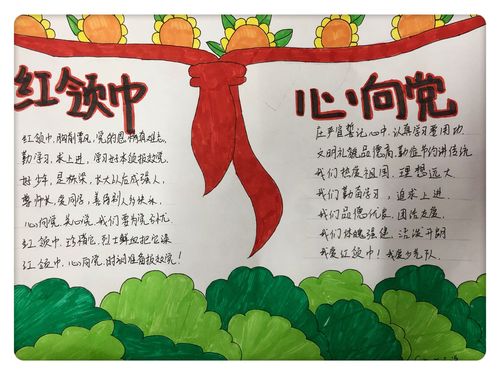 红领巾
心向党
红领巾，胸前飘，党的恩情真难忘
勤学习，求上进，学习好本领报效党
好少年，是栋梁，长大以后成强人
尊师长，爱同学，
心向党，关心党，我们要为党争光
红领巾，珍惜它，烈士鲜血把它染
红领巾，心向党，时刻准备报效党！
庄严宣誓记心中，认真学习要用功
文明礼貌品德高，勤俭节约讲传统
我们热爱祖国，理想远大
我们勤奋学习，追求上进
我们品德优良，团结友爱
我们体魄强健，活泼开朗
我爱红领巾！我爱少先队